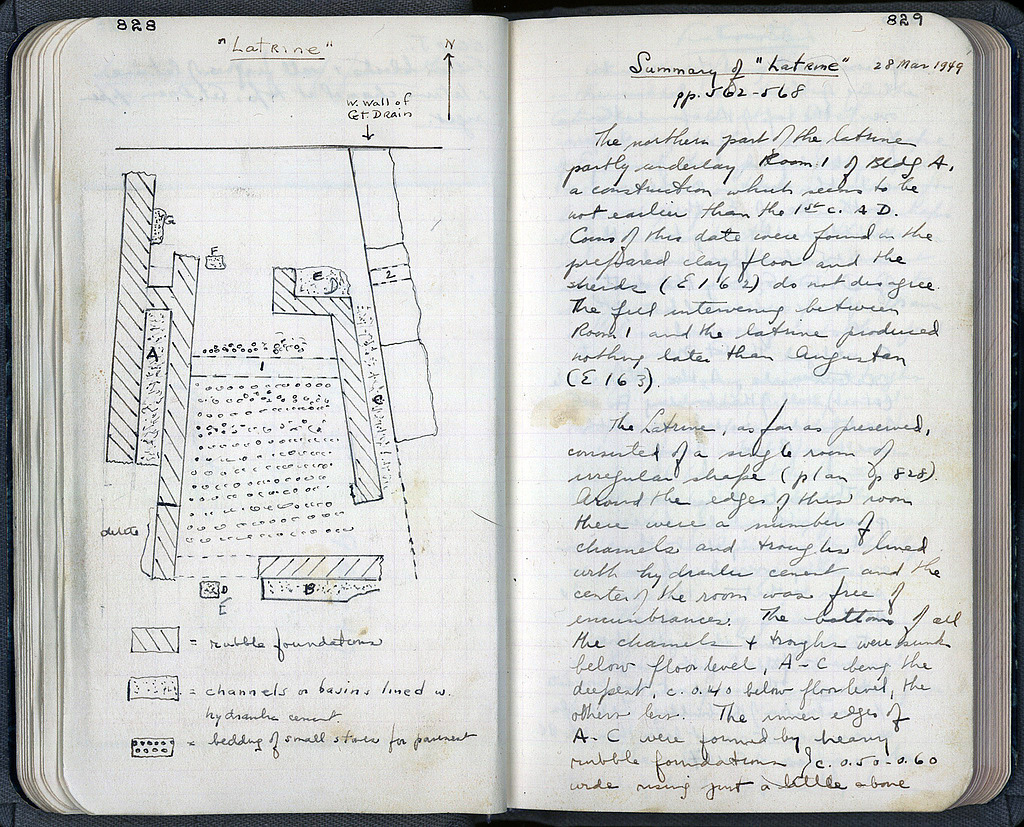 828
"Latrine"
N
W. Wall of
Gt. Drain
G
F
E
D
2
A
1
C
B
D
E
= rubble foundations
= channels or basins lined w.
hydraulic cement.
= bedding of small stones for pavement
829
Summary of "Latrine" 28 Mar 1949
pp. 562-568
The northern part of the latrine
partly underlay Room 1 of Bldg A,
a construction which seems to be
not earlier than the 1st c. A.D.
Coins of this date were found in the
prepared clay floor and the
sherds (E 162) do not disagree.
The fill intervening between
Room 1 and the latrine produced
nothing later than Augustan
(E 163).
The Latrine, as far as preserved,
consisted of a single room of
irregular shape (plan p 828).
Around the edges of this room
there were a number of
channels and troughs lined
with hydraulic cement and the
center of the room was free of
encumbrances. The bottoms of all
the channels & troughs were sunk
below floor level, A-C being the
deepest, c. 0.40 below floor level, the
others less. The inner edges of
A-C were formed by heavy
rubble foundations c. 0.50-0.60
wide rising just a little above